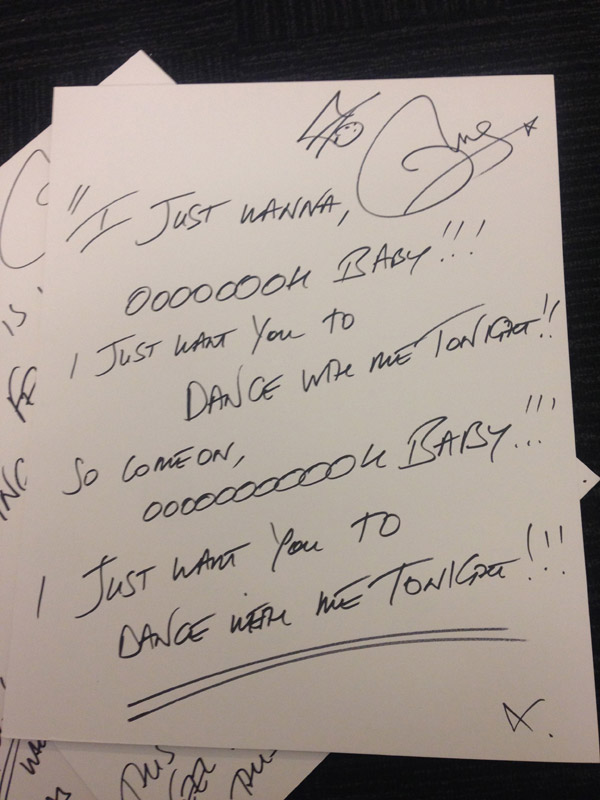 "I JUST WANNA,
OOOOOOOH BABY!!!
I JUST WANT YOU TO
DANCE WITH ME TONIGHT!!
SO COME ON,
OOOOOOOOOOH BABY!!!
I JUST WANT YOU TO
DANCE WITH ME TONIGHT!!!
4.
IS